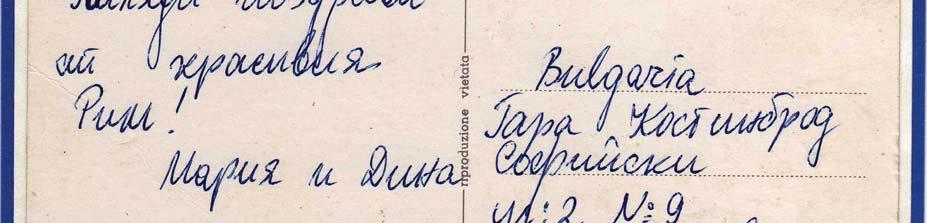 поздрави
от красивия
Рим!
Мария и Дина
riproduzione vietata
Bulgaria
Гара Костинброд
Софийски
ул: 2 № 9